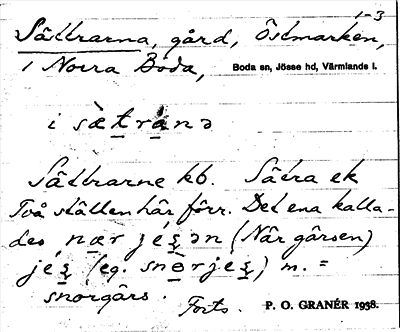 1-3
Sättrarna, gård, Östmarken,
i Norra Boda, Boda sn, Jösse hd, Värmlands l.
i sætranə
Sättrarne kb. Sätra ek
Två ställen här förr. Det ena kalla-
des, nær jeʂən (När gärsen)
jeʂ (eg. snòrjeʂ) m. =
snorgärs.
Forts. P. O. GRANÉR 1938.